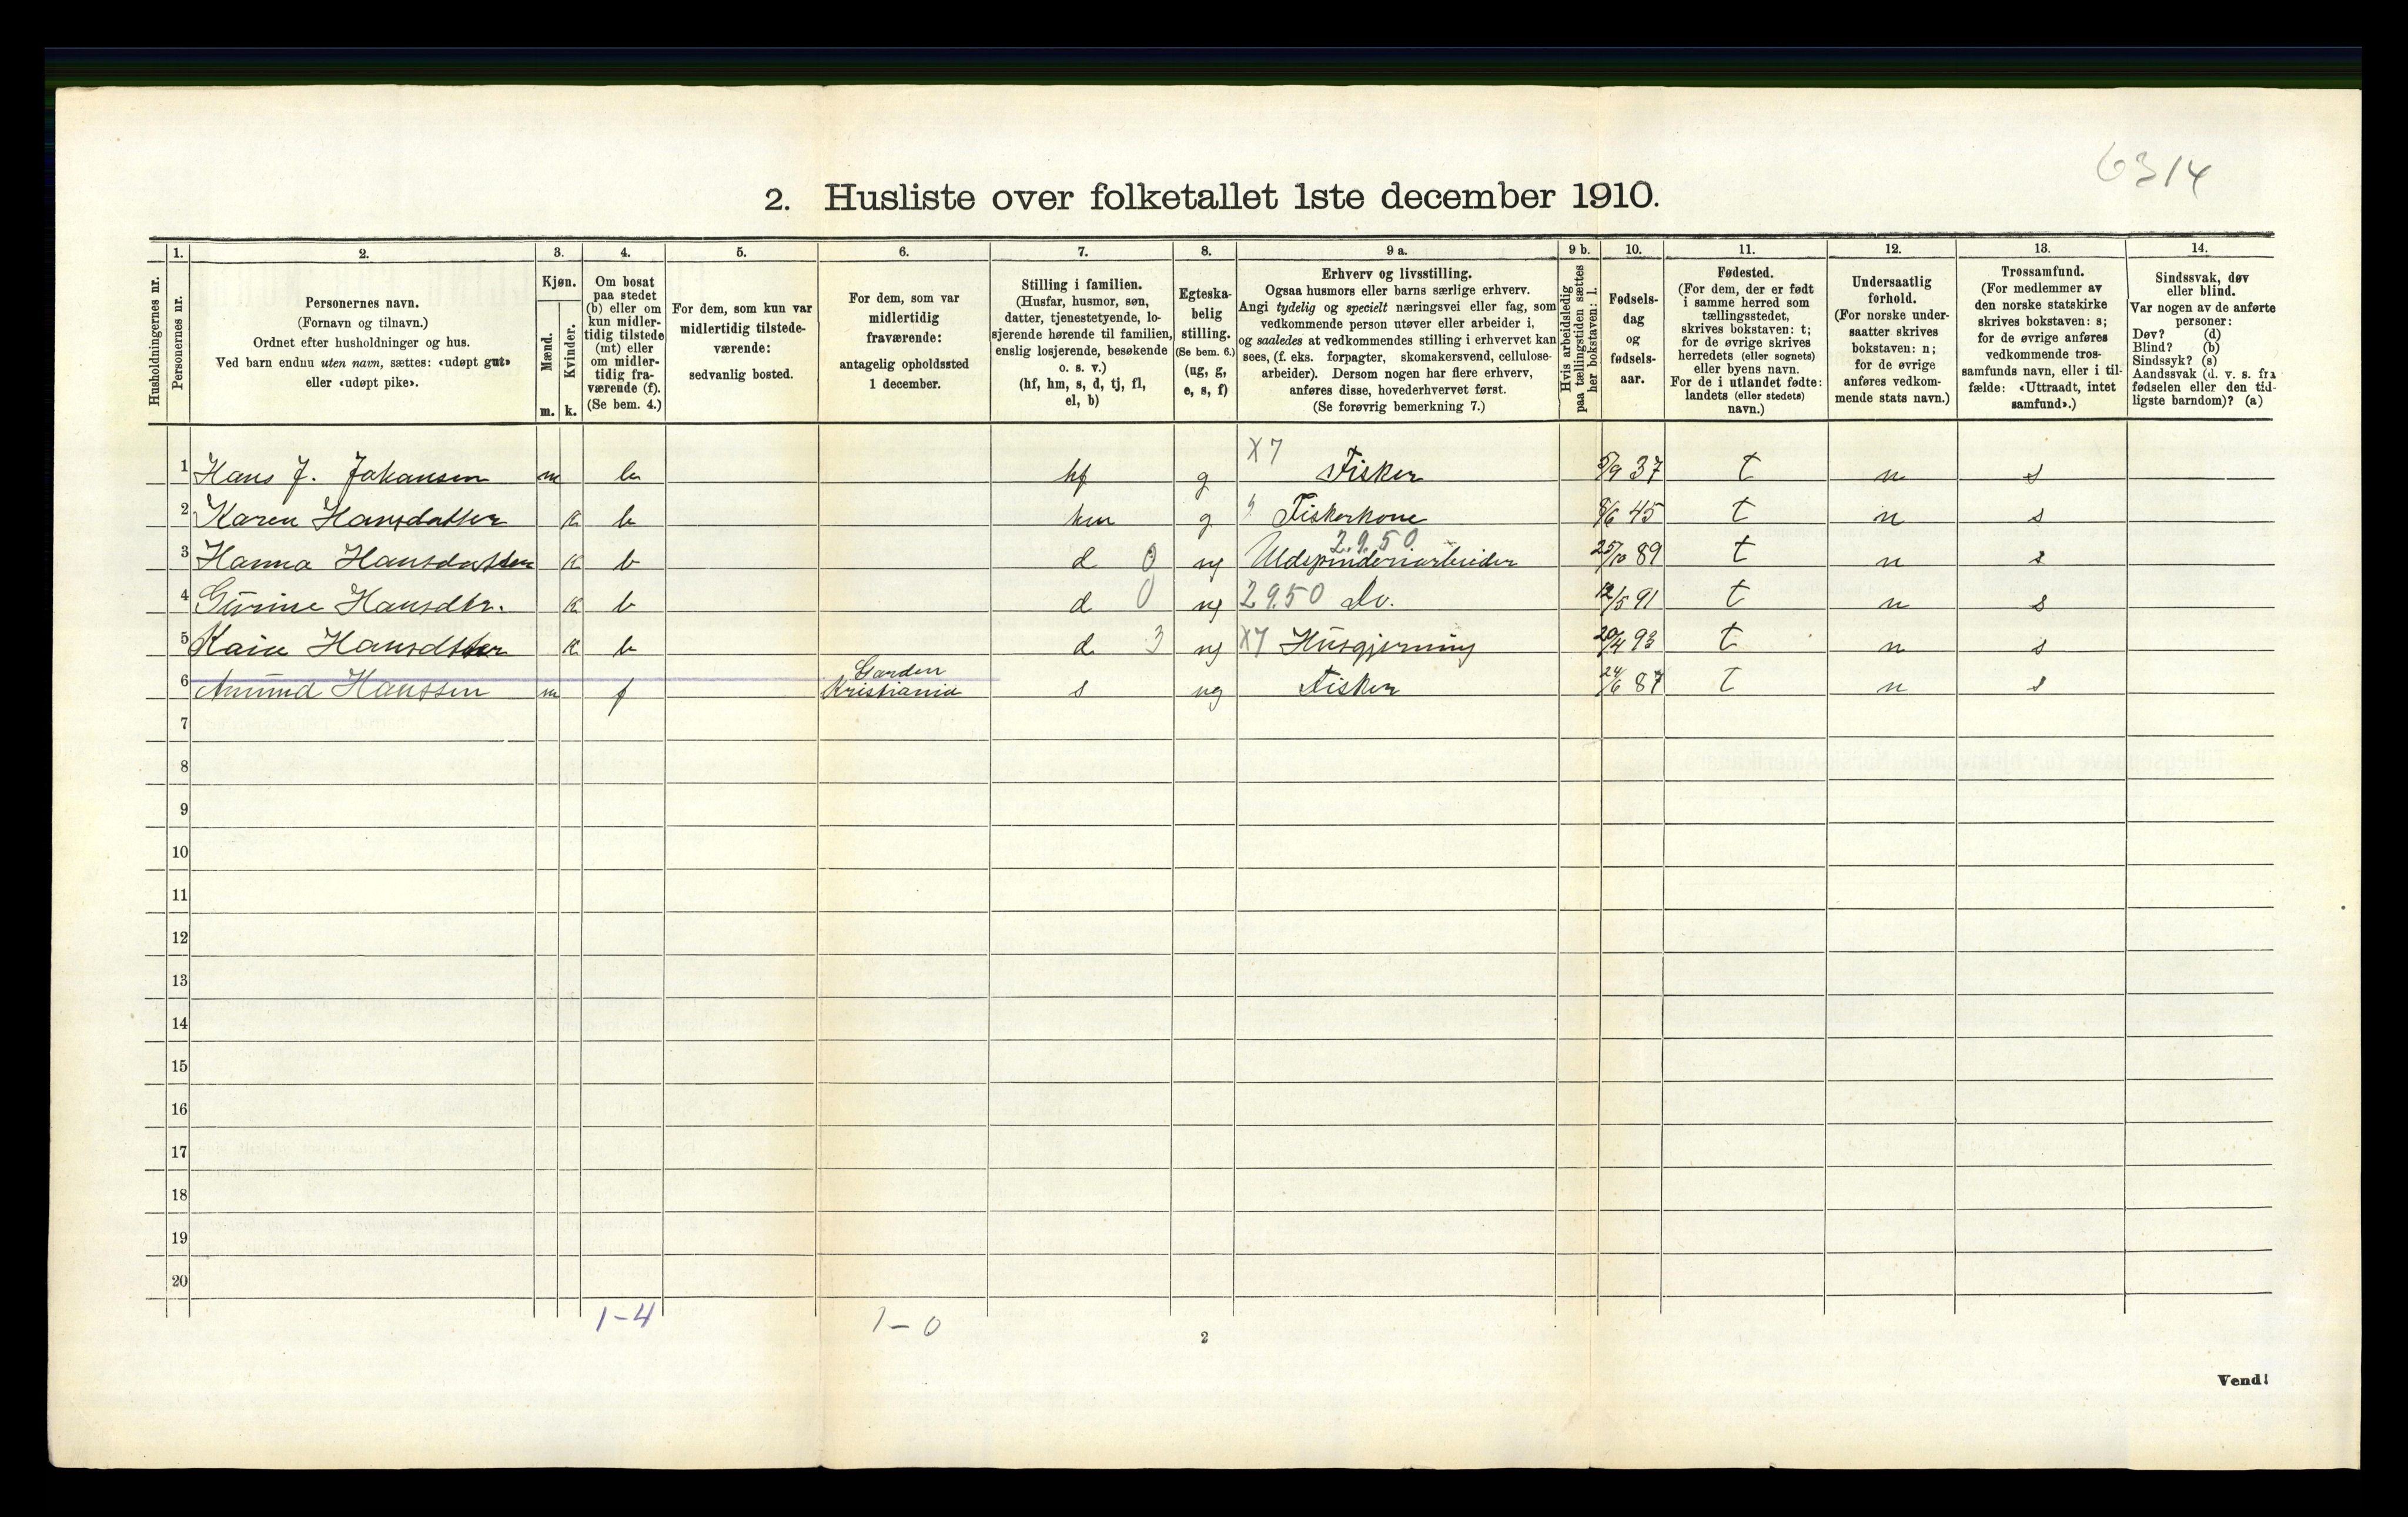 6314
2. Husliste over folketallet 1ste december 1910.
Husholdningernes nr.
1.
Personernes nr.
2.
Personernes navn.
(Fornavn og tilnavn.)
Ordnet efter husholdninger og hus.
Ved barn endnu uten navn, sættes: «udøpt gut»
eller «udøpt pike».
3.
Kjøn.
Mænd.
Kvinder.
m. k.
4.
Om bosat
paa stedet
(b) eller om
kun midler-
tidig tilstede
(mt) eller
om midler-
tidig fra-
værende (f).
(Se bem. 4.)
5.
For dem, som kun var
midlertidig tilstede-
værende:
sedvanlig bosted.
6.
For dem, som var
midlertidig
fraværende:
antagelig opholdssted
1 december.
7.
Stilling i familien.
(Husfar, husmor, søn,
datter, tjenestetyende, lo-
sjerende hørende til familien,
enslig losjerende, besøkende
o. s. v.)
(hf, hm, s, d, tj, fl,
el, b)
8.
Egteska-
belig
stilling.
(Se bem. 6.)
(ug, g,
e, s, f)
9 a.
Erhverv og livsstilling.
Ogsaa husmors eller barns særlige erhverv.
Angi tydelig og specielt næringsvei eller fag, som
vedkommende person utøver eller arbeider i,
og saaledes at vedkommendes stilling i erhvervet kan
sees, (f. eks. forpagter, skomakersvend, cellulose-
arbeider). Dersom nogen har flere erhverv,
anføres disse, hovederhvervet først.
(Se forøvrig bemerkning 7.)
9 b.
Hvis arbeidsledig
paa tællingstiden sættes
her bokstaven: l.
10.
Fødsels-
dag
og
fødsels-
aar.
11.
Fødested.
(For dem, der er født
i samme herred som
tællingsstedet,
skrives bokstaven: t;
for de øvrige skrives
herredets (eller sognets)
eller byens navn.
For de i utlandet fødte:
landets (eller stedets)
navn.)
12.
Undersaatlig
forhold.
(For norske under-
saatter skrives
bokstaven: n;
for de øvrige
anføres vedkom-
mende stats navn.)
13.
Trossamfund.
(For medlemmer av
den norske statskirke
skrives bokstaven: s;
for de øvrige anføres
vedkommende tros-
samfunds navn, eller i til-
fælde: «Uttraadt, intet
samfund».)
14.
Sindssvak, døv
eller blind.
Var nogen av de anførte
personer:
Døv? (d)
Blind? (b)
Sindssyk? (s)
Aandssvak (d. v. s. fra
fødselen eller den tid-
ligste barndom)? (a)
X7
1 Hans J. Johansen m b hf g Fisker 5/9 37 t n s
2 Karen Hansdatter k b hm g Fiskerkone 8/6 45 t n s
2.9.50
3 Hanna Hansdatter k b d 0 ug Uldspinderiarbeider 25/10 89 t n s
4 Gurine Hansdtr. k b d 0 ug 2950 Do. 12/5 91 t n s
5 Kaia Hansdtter k b d 3 ug X7 Husgjerning 20/4 93 t n s
Garden
6 Amund Hanssen m f Kristiania s ug Fisker 24/6 87 t n s
7
8
9
10
11
12
13
14
15
16
17
18
19
20
1-4 1-0
2
Vend!